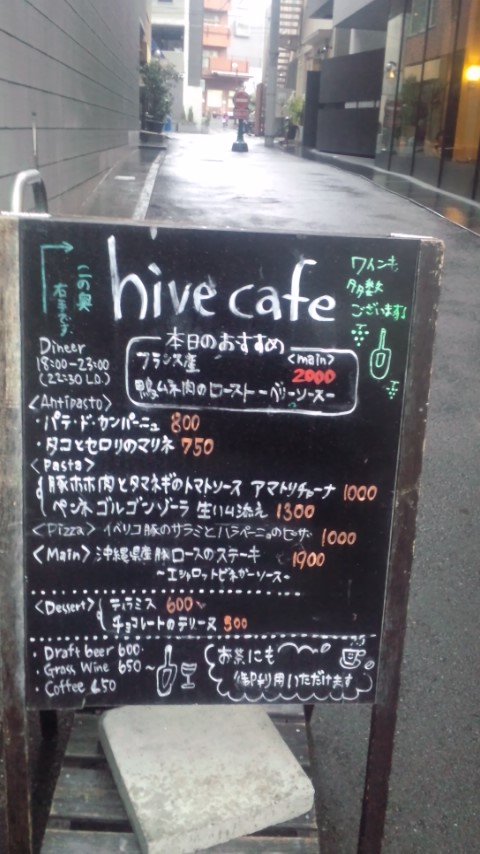 この奥
右手です
hive cafe
ワインも
多数
ございます!
Dineer
18:00-23:00
(22:30 L.O.)
本日のおすすめ
フランス産 <main>
2000
鴨ムネ肉のロースト ーベリーソースー
<Antipasto>
・パテ・ド・カンパーニュ 800
・タコとセロリのマリネ 750
<Pasta>
豚ホホ肉とタマネギのトマトソース アマトリチャーナ 1000
ペンネ ゴルゴンゾーラ 生ハム添え 1300
<Pizza> イベリコ豚のサラミとハラペーニョのピザ 1000
<Main> 沖縄県産豚ロースのステーキ 1900
~エシャロットビネガーソース~
<Dessert> ティラミス 600
チョコレートのテリーヌ 500
・Draft beer 600
・Grass Wine 650~
・Coffee 450
お茶にも
御利用いただけます